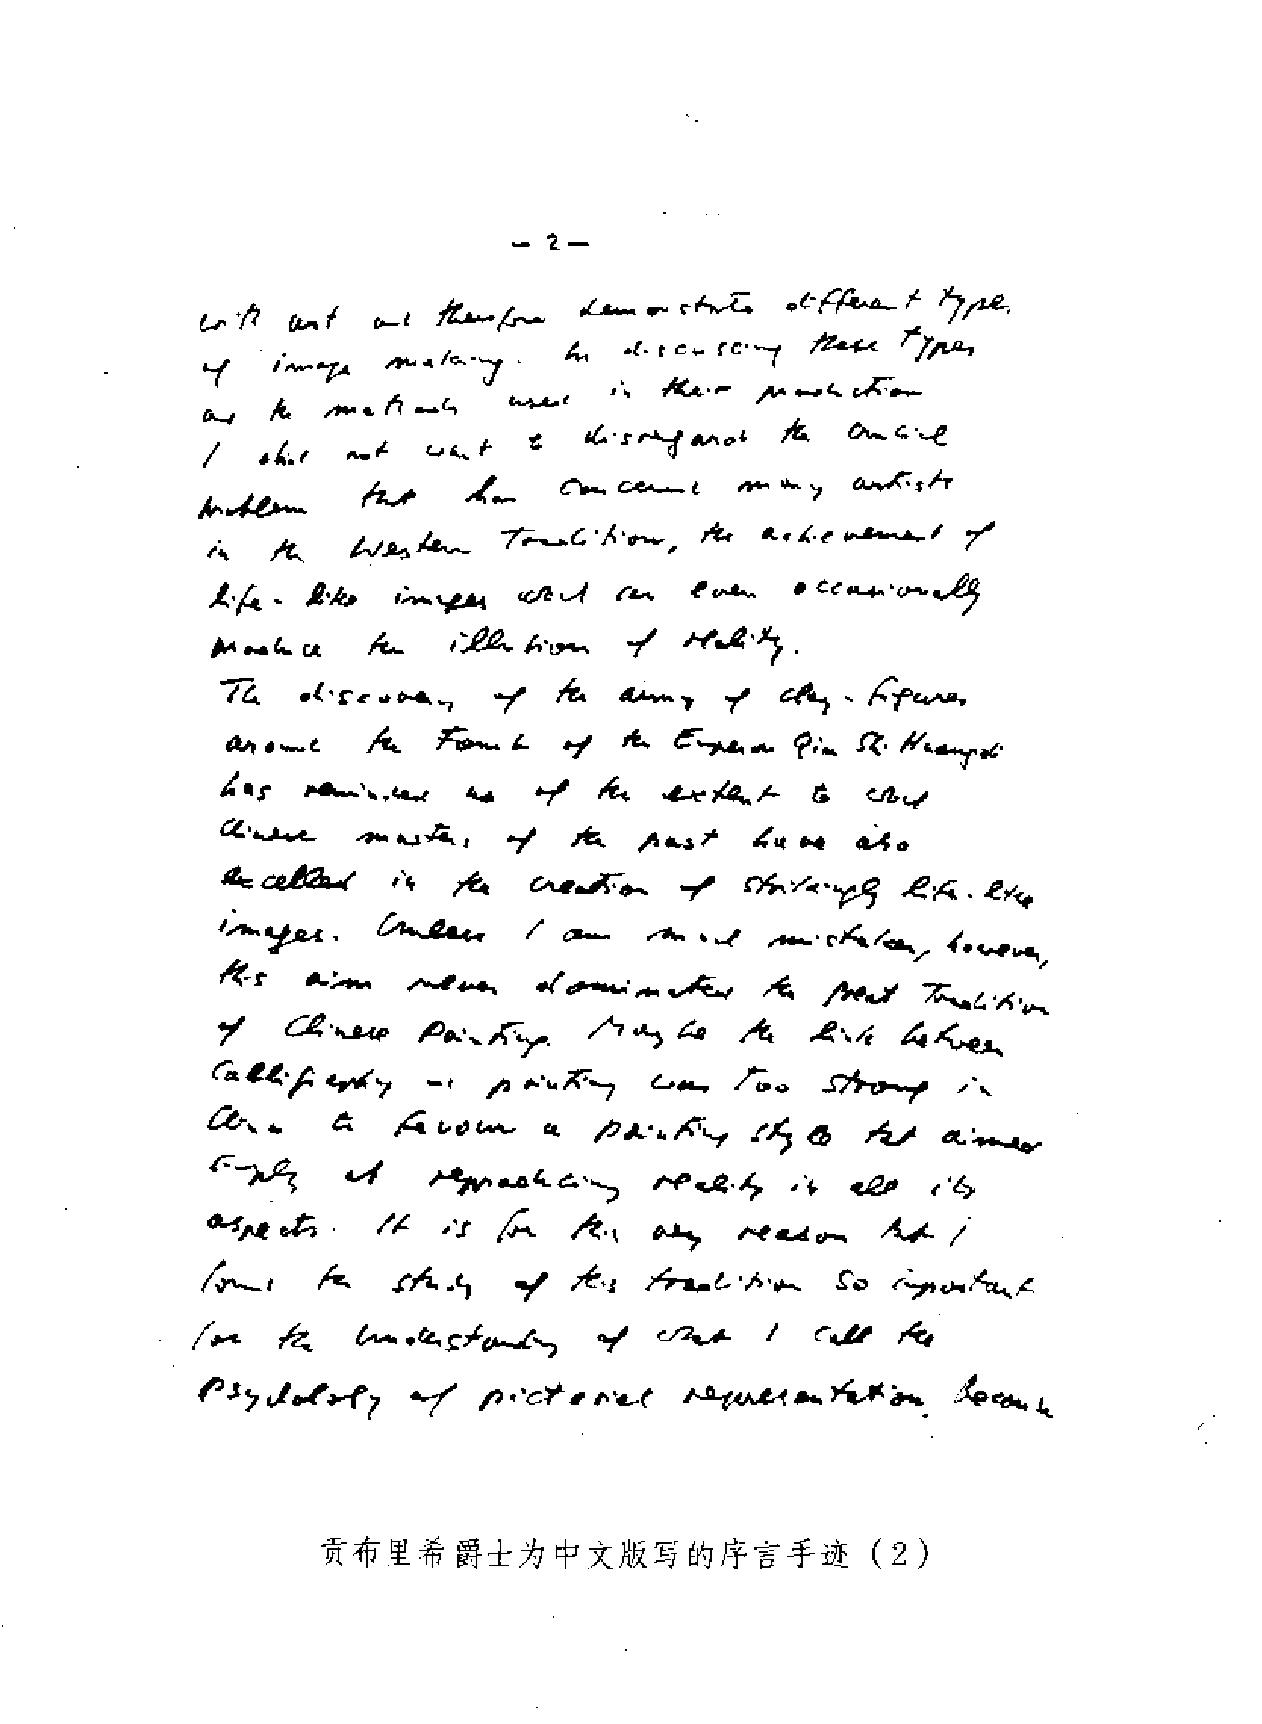 — 2 —
with art and therefore demonstrate different types
of image making. In discussing these types
and the methods used in their production
I did not want to disregard the crucial
problem that has concerned many artists
in the Western Tradition, the achievement of
life-like images which can even occasionally
produce the illusion of reality.
The discovery of the army of clay-figures
around the Tomb of the Emperor Qin Shi Huangdi
has reminded us of the extent to which
Chinese masters of the past have also
excelled in the creation of strikingly life-like
images. Unless I am much mistaken, however,
this aim never dominated the great Tradition
of Chinese Painting. Maybe the link between
Calligraphy and painting was too strong in
China to favour a painting style that aimed
simply at reproducing reality in all its
aspects. It is for this very reason that I
found the study of this tradition so important
for the understanding of what I call the
psychology of pictorial representation, because
贡布里希爵士为中文版写的序言手迹（2）